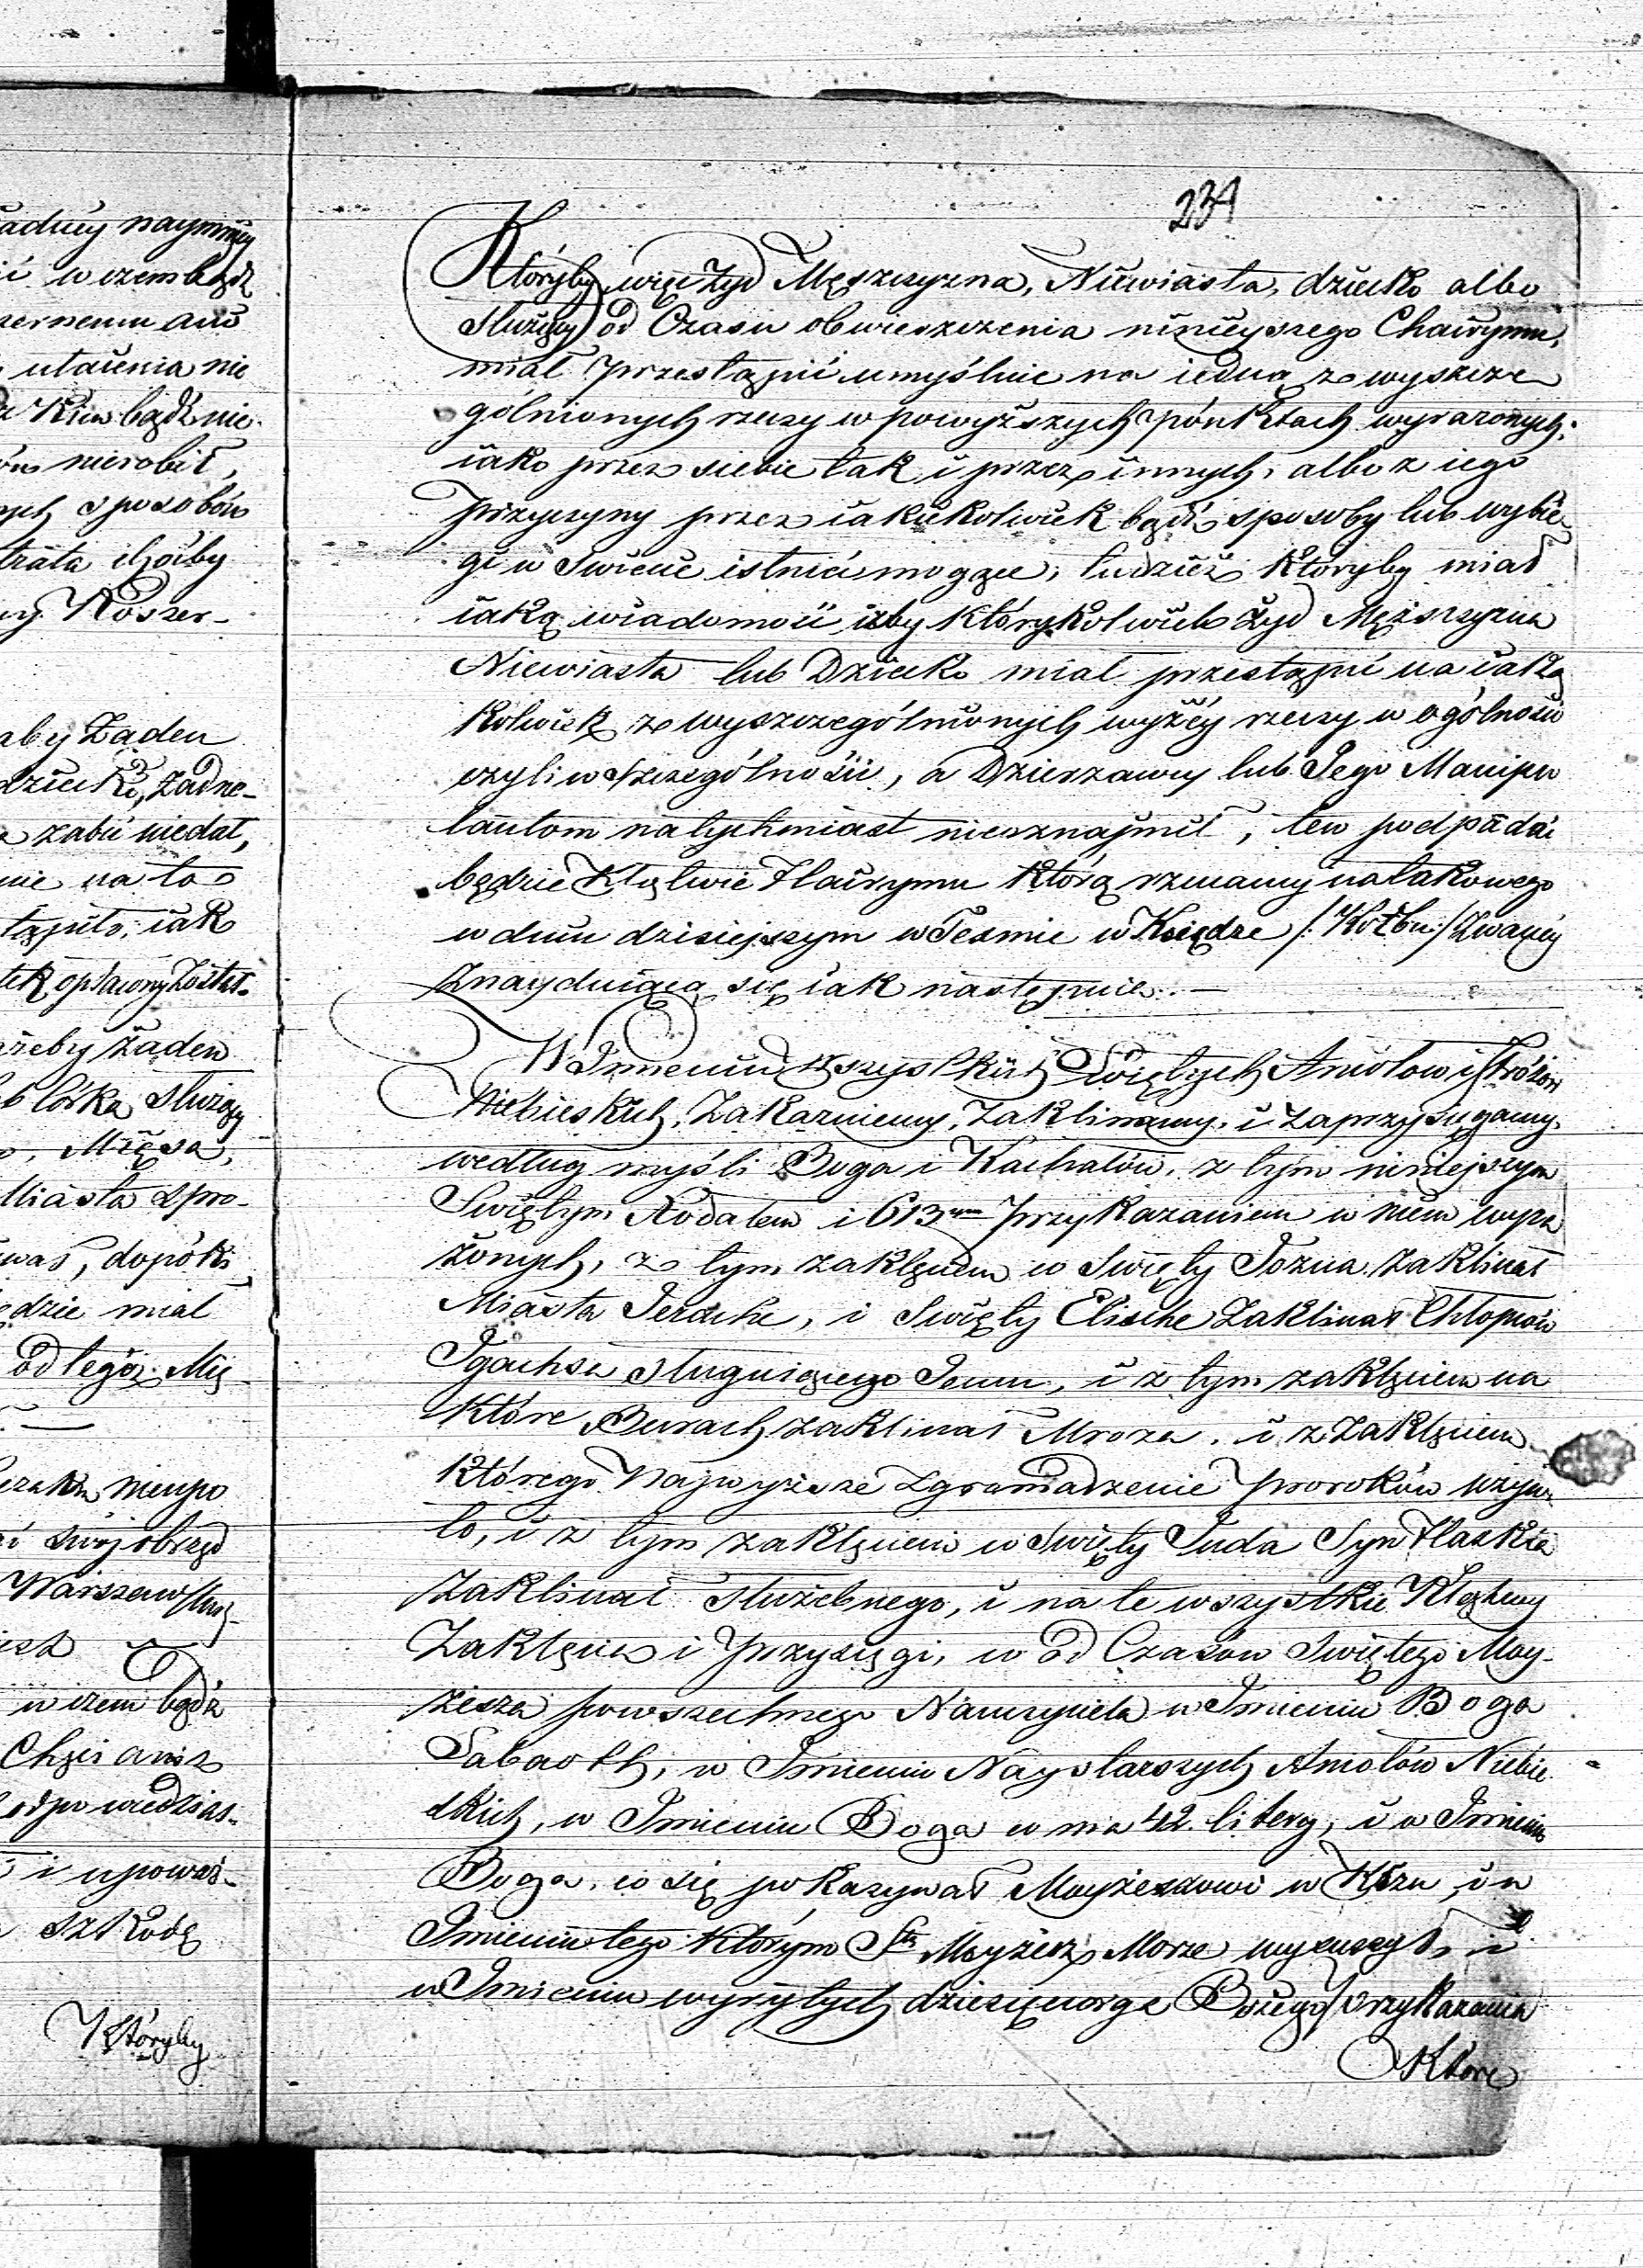 aduey naymniey
i w czem bądź
utaienia nie
Kim bądź nie
nierobił,
nych sposobów
trata choćby
Koszer-
aby Żaden
dziecko, żadne-
zabić niedał,
nie na to
tąpiło, iak
żeby żaden
córka służący
Mięsa,
Miasta spro-
wał, dopóki
ędzie miał
od tegoż Mię
niupo
swój obrząd
Warszawskiey
w czem bądź
Chęci aniz
odpowiedział
i upoważ-
szkodę
Któryby
231
Któryby więc Żyd Męszczyzna, Niewiasta, dziecko albo
Służący od Czasu obwieszczenia ninieyszego Chairymu,
miał przestąpić umyślnie na iedną z wyszcze
gólnionych rzeczy w powyższych pónktach wyrażonych,
iako przez siebie tak i przez innych, albo z iego
przyczyny przez iakiekolwiek bądź sposoby lub wybie
gi w świecie istnieć mogące, tudzież któryby miał
iaką wiadomość iżby którykolwiek Żyd Męźszczyzna
Niewiasta lub Dziecko miał przestąpić na iaką
kolwiek z wyszczególnionych wyżéy rzeczy w ogólności
czyli w szczególności, a Dzierzawcy lub Jego Manipu
lantom natychmiast nieoznajmił, ten podpadać
będzie Klątwie Hairymu którą rzucamy na takowego
w dniu dzisiejszym w Texmie w Księdze /: Kolbu :/ Zwanéy
Znayduiącą się iak następuie. —
W Imieniu wszystkich Świętych Aniołow i Stróżów
Niebieskich, Zakazuiemy, Zaklinamy, i Zaprzysięgamy,
według myśli Boga i Kachałów, z tym niniejszym
Świętym Rodałem i 613um Przykazaniem w niem wyra
żonych, z tym zaklęciem co Święty Jozua zaklinał
Miasta Jeriche, i Święty Elische Zaklinał Chłopców
Igachse sługuiącego Jemu, i z tym zaklęciem na
które Burach zaklinał Mroza, i z zaklęciem
którego Najwyższe Zgromadzenie Proroków używa
ło, i z tym zaklęciem co Święty Juda Syn Haskla
Zaklinał Służebnego, i na te wszystkie Klątwy
Zaklęcia i Przysięgi, co od Czasów Świętego Moy-
żesza powszechnego Nauczyciela w Imieniu Boga
Sabaoth, w Imieniu Naystarszych Aniołów Niebie
skich, w Imieniu Boga co ma 42. litery, i w Imieniu
Boga, co się pokazywał Moyżeszowi w Krzu, i w
Imieniu tego którym Sty Moyżesz Morze wysuszył, i
w Imieniu wyrytych dziesięciorga Bożego Przykazania
Które